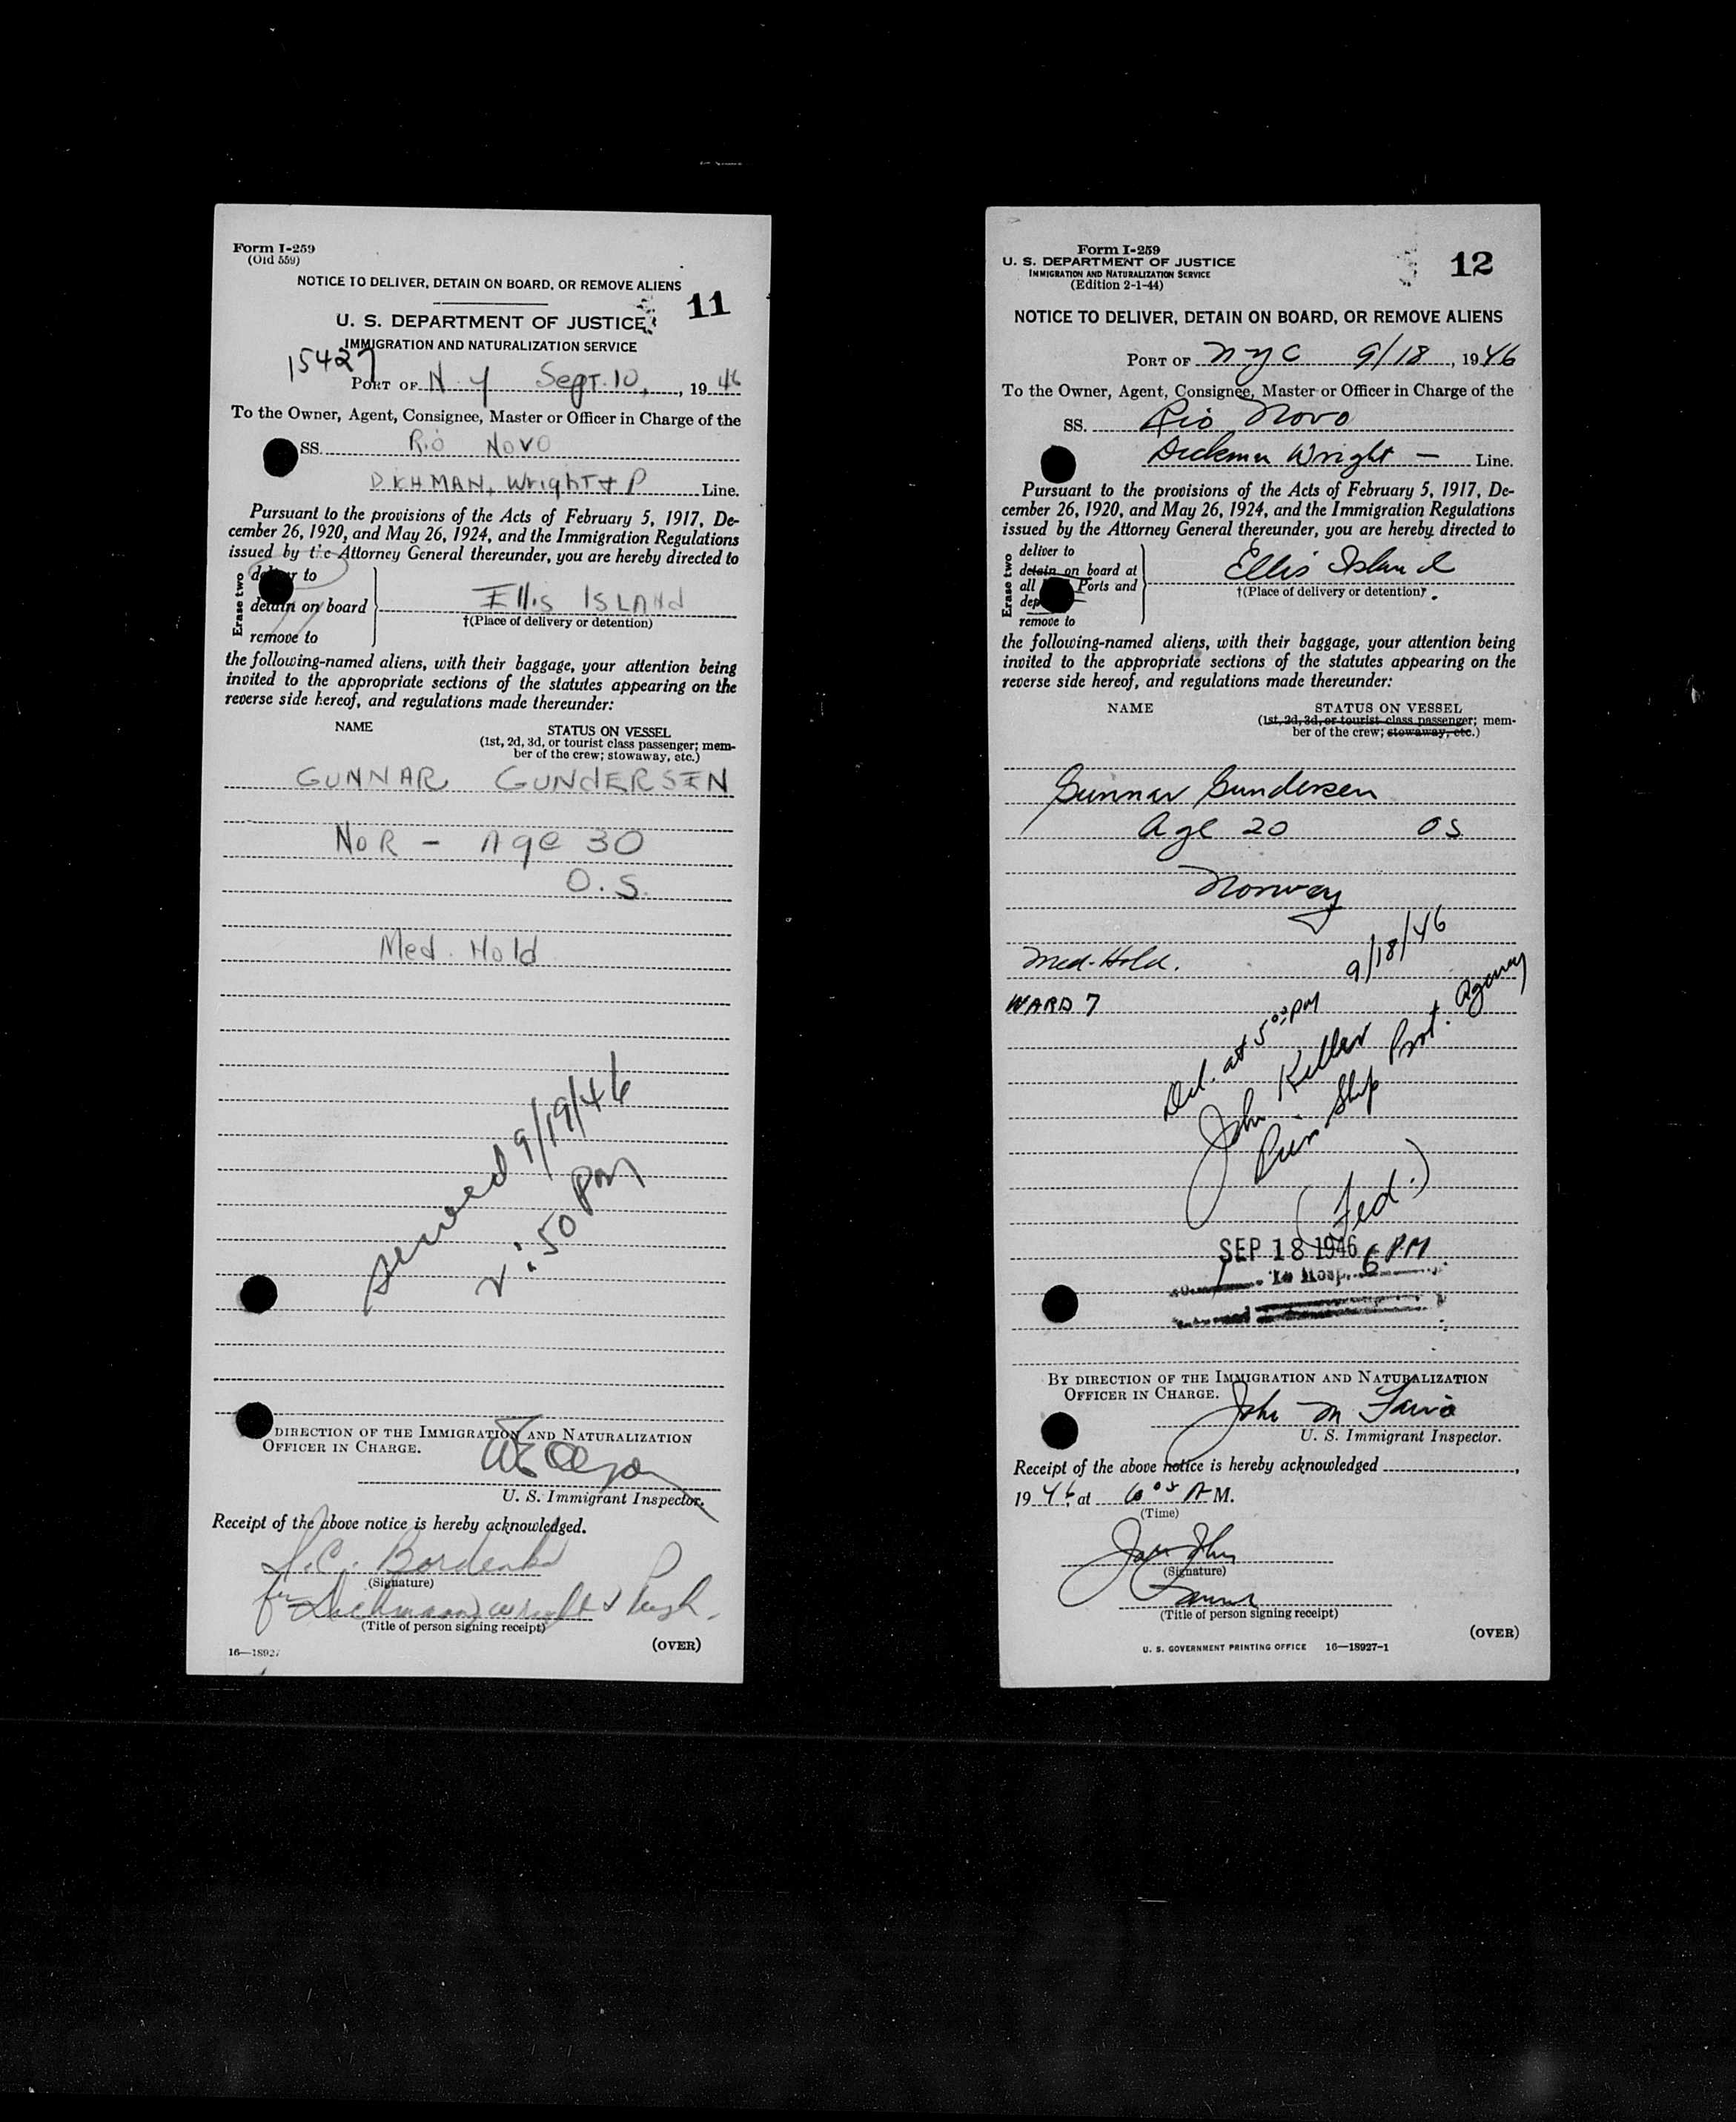 Form I-259
(Old 559)
NOTICE TO DELIVER, DETAIN ON BOARD, OR REMOVE ALIENS
11
U. S. DEPARTMENT OF JUSTICE
IMMIGRATION AND NATURALIZATION SERVICE
15427
PORT OF N.Y Sept. 10, , 19 46
To the Owner, Agent, Consignee, Master or Officer in Charge of the
SS. Rio Novo
DKHMAN, Wright & P Line.
Pursuant to the provisions of the Acts of February 5, 1917, De-
cember 26, 1920, and May 26, 1924, and the Immigration Regulations
issued by the Attorney General thereunder, you are hereby directed to
Erase two
deliver to
detain on board
remove to
Ellis ISLANd
†(Place of delivery or detention)
the following-named aliens, with their baggage, your attention being
invited to the appropriate sections of the statutes appearing on the
reverse side hereof, and regulations made thereunder:
NAME STATUS ON VESSEL
(1st, 2d, 3d, or tourist class passenger; mem-
ber of the crew; stowaway, etc.)
GUNNAR GUNdERSEN
NOR - Age 30
O.S.
Med. Hold
served 9/19/46
2:50 PM
DIRECTION OF THE IMMIGRATION AND NATURALIZATION
OFFICER IN CHARGE.
U. S. Immigrant Inspector.
Receipt of the above notice is hereby acknowledged.
(Signature)
for Dichmann, Wright & Pugh.
(Title of person signing receipt)
(OVER)
16—18927
Form I-259
U. S. DEPARTMENT OF JUSTICE
IMMIGRATION AND NATURALIZATION SERVICE
(Edition 2-1-44)
12
NOTICE TO DELIVER, DETAIN ON BOARD, OR REMOVE ALIENS
PORT OF NYC 9/18 , 1946
To the Owner, Agent, Consignee, Master or Officer in Charge of the
SS. Rio Novo
Dickman Wright — Line.
Pursuant to the provisions of the Acts of February 5, 1917, De-
cember 26, 1920, and May 26, 1924, and the Immigration Regulations
issued by the Attorney General thereunder, you are hereby directed to
Erase two
deliver to
detain on board at
all Ports and
remove to
Ellis Island
†(Place of delivery or detention).
the following-named aliens, with their baggage, your attention being
invited to the appropriate sections of the statutes appearing on the
reverse side hereof, and regulations made thereunder:
NAME STATUS ON VESSEL
(1st, 2d, 3d, or tourist class passenger; mem-
ber of the crew; stowaway, etc.)
Gunnar Gundersen
Age 20 OS
Norway
Med-Hold.
WARD 7
9/18/46
Del. at 5 00 PM
John Keller
Ship Prot. Agency
(Fed.)
SEP 18 1946 6 PM
To Hosp.
BY DIRECTION OF THE IMMIGRATION AND NATURALIZATION
OFFICER IN CHARGE.
John M
U. S. Immigrant Inspector.
Receipt of the above notice is hereby acknowledged ,
1946, at 6 05 M.
(Time)
(Signature)
(Title of person signing receipt)
(OVER)
U. S. GOVERNMENT PRINTING OFFICE 16—18927-1